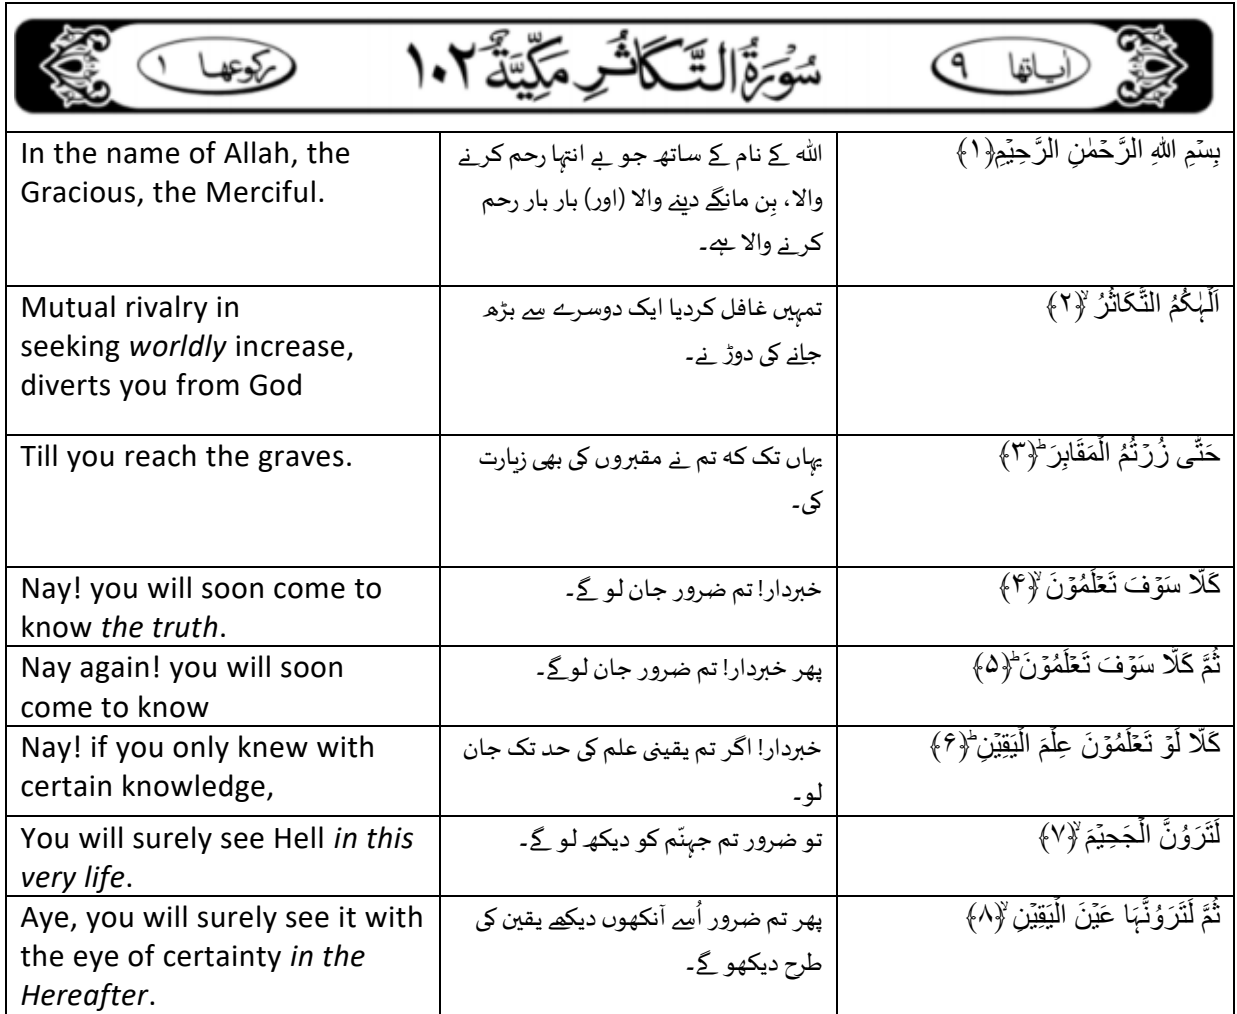 اٰیاتها ۹ سُوْرَةُ التَّكَاثُرِ مَكِّيَّةٌ ۱۰۲ رکوعها ۱
In the name of Allah, the
Gracious, the Merciful.
اللہ کے نام کے ساتھ جو بے انتہا رحم کرنے
والا، بِن مانگے دینے والا (اور) بار بار رحم
کرنے والا ہے۔
بِسۡمِ اللّٰہِ الرَّحۡمٰنِ الرَّحِیۡمِ﴿۱﴾
Mutual rivalry in
seeking worldly increase,
diverts you from God
تمہیں غافل کردیا ایک دوسرے سے بڑھ
جانے کی دوڑ نے۔
اَلۡہٰکُمُ التَّکَاثُرُ ۙ﴿۲﴾
Till you reach the graves.
یہاں تک کہ تم نے مقبروں کی بھی زیارت
کی۔
حَتّٰی زُرۡتُمُ الۡمَقَابِرَ ؕ﴿۳﴾
Nay! you will soon come to
know the truth.
خبردار! تم ضرور جان لو گے۔
کَلَّا سَوۡفَ تَعۡلَمُوۡنَ ۙ﴿۴﴾
Nay again! you will soon
come to know
پھر خبردار! تم ضرور جان لوگے۔
ثُمَّ کَلَّا سَوۡفَ تَعۡلَمُوۡنَ ؕ﴿۵﴾
Nay! if you only knew with
certain knowledge,
خبردار! اگر تم یقینی علم کی حد تک جان
لو۔
کَلَّا لَوۡ تَعۡلَمُوۡنَ عِلۡمَ الۡیَقِیۡنِ ؕ﴿۶﴾
You will surely see Hell in this
very life.
تو ضرور تم جہنّم کو دیکھ لو گے۔
لَتَرَوُنَّ الۡجَحِیۡمَ ۙ﴿۷﴾
Aye, you will surely see it with
the eye of certainty in the
Hereafter.
پھر تم ضرور اُسے آنکھوں دیکھے یقین کی
طرح دیکھو گے۔
ثُمَّ لَتَرَوُنَّہَا عَیۡنَ الۡیَقِیۡنِ ۙ﴿۸﴾